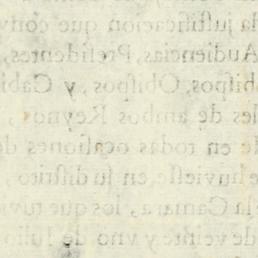 la justificacion que conv
Audiencias, Presidentes,
bispos, Obispos, y Cabi
les de ambos Reynos,
te en todas ocasiones de
e huviesse en su distrito,
la Camara, los que tuvi
de veinte y vno de Julio